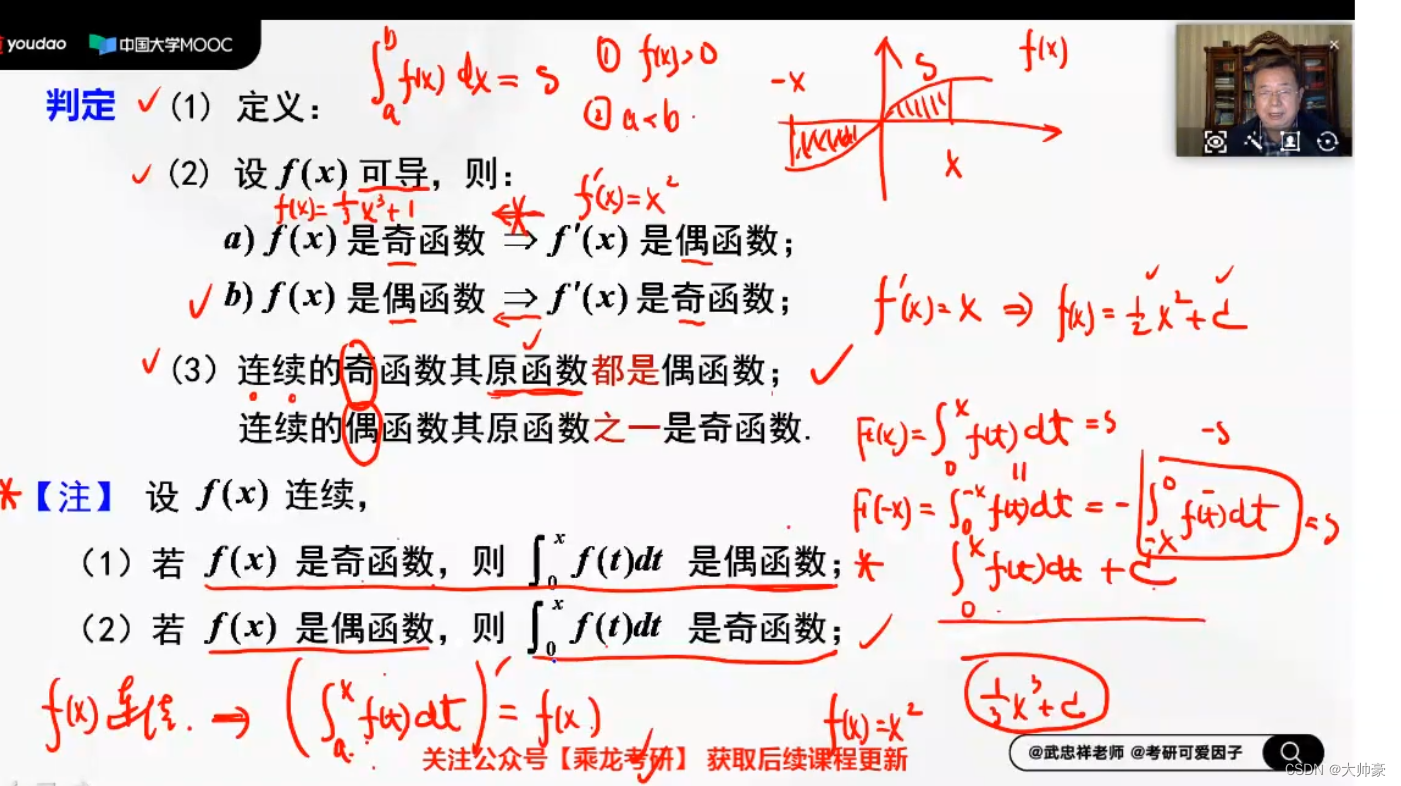 youdao 中国大学MOOC
∫ₐᵇ f(x) dx = S
① f(x)>0
② a<b
-x
S
f(x)
x
判定 ✓ (1) 定义：
✓ (2) 设 f(x) 可导，则：
f(x)=1/3 x³+1
f'(x)=x²
a) f(x) 是奇函数 ⇒ f'(x) 是偶函数；
✓ b) f(x) 是偶函数 ⇒ f'(x) 是奇函数；
f'(x)=x ⇒ f(x)=1/2 x²+C
✓ (3) 连续的奇函数其原函数都是偶函数；✓
连续的偶函数其原函数之一是奇函数.
F(x)=∫₀ˣ f(t)dt=S
-S
F(-x)=∫₀⁻ˣ f(t)dt=-∫₋ₓ⁰ f(t)dt=S
*【注】 设 f(x) 连续，
(1) 若 f(x) 是奇函数，则 ∫₀ˣ f(t)dt 是偶函数；*
∫₀ˣ f(t)dt+C
(2) 若 f(x) 是偶函数，则 ∫₀ˣ f(t)dt 是奇函数；✓
f(x) 连续. → (∫ₐˣ f(t)dt)' = f(x)
f(x)=x²
1/3 x³+C
关注公众号【乘龙考研】 获取后续课程更新
@武忠祥老师 @考研可爱因子
CSDN @大帅豪